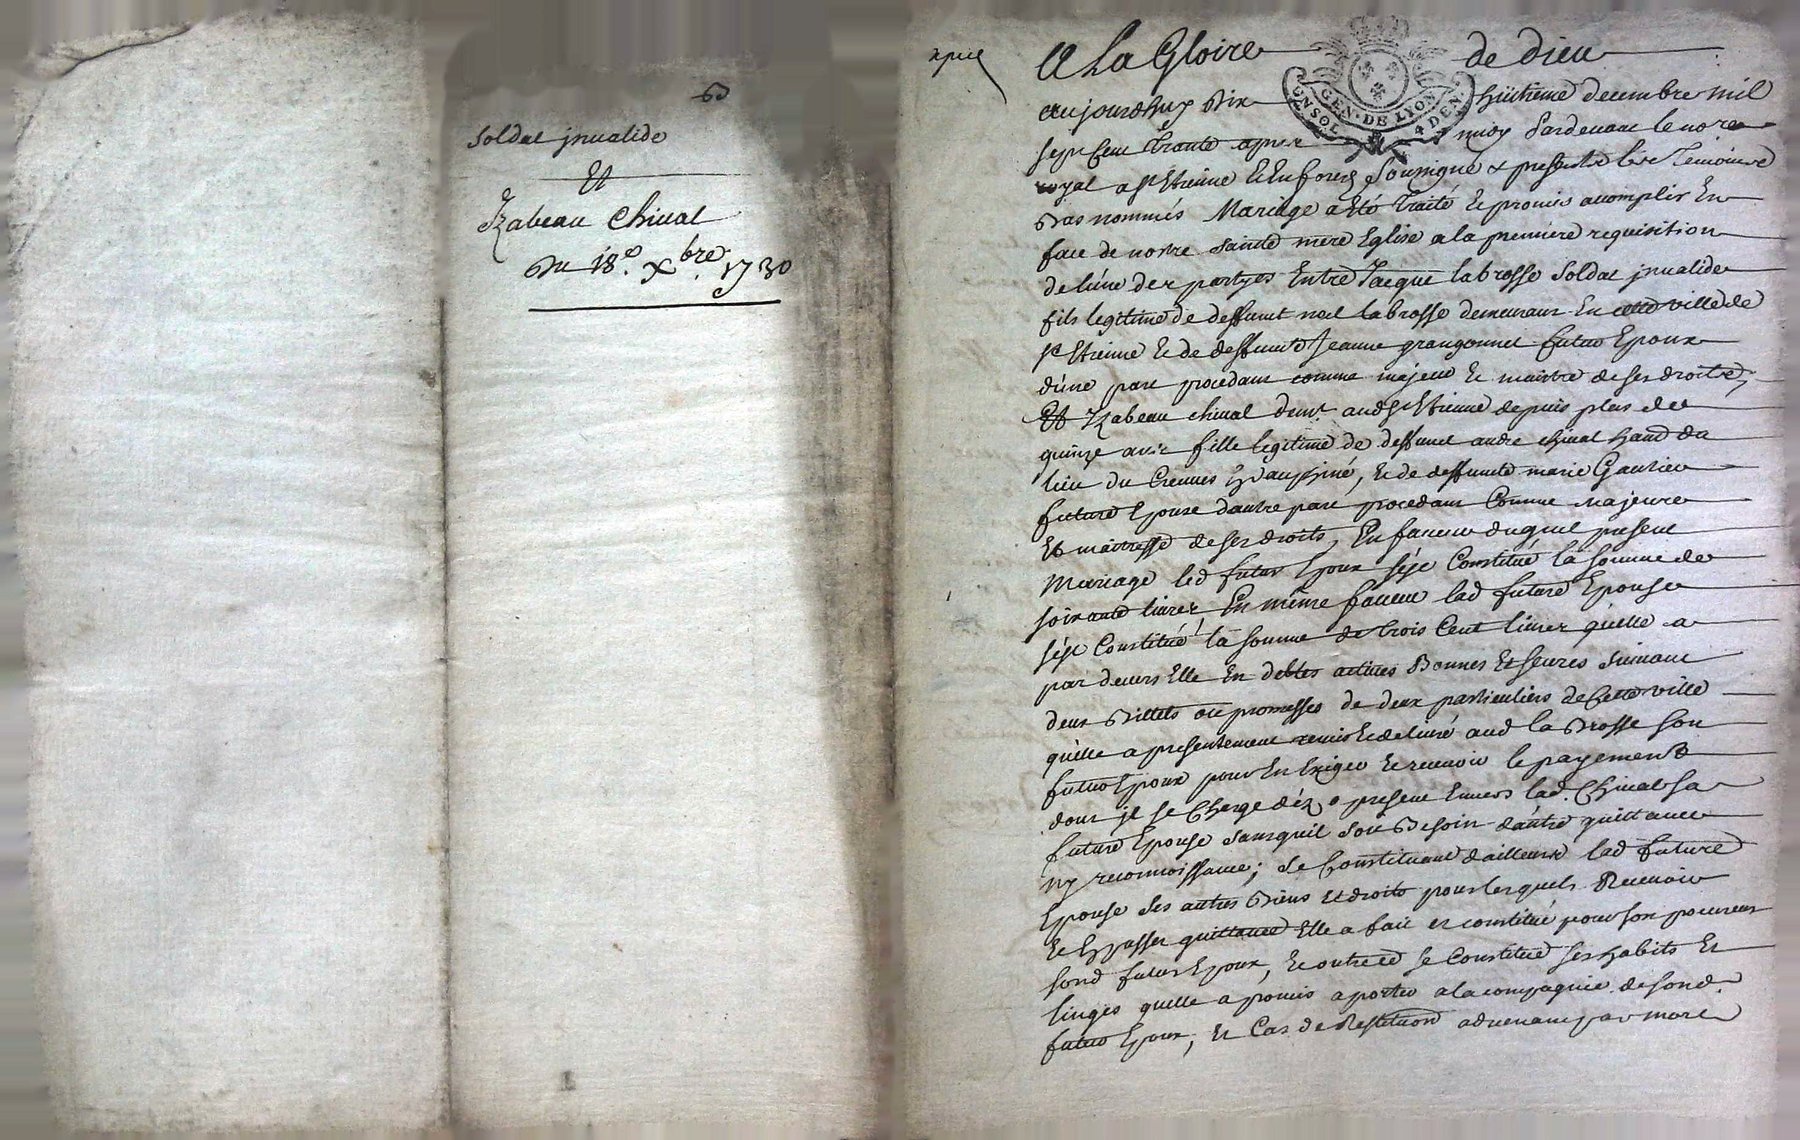 soldat jnualide
Et
Izabeau Chiual
Du 18e. Xbre. 1730
A La Gloire de dieu
aujourdhuy Dix huitieme decembre mil
sept Cent trante apres midy pardeuant le nore
royal a St Etienne En forez Soussigné & presents les Temoins
Bas nommés Mariage a Eté Traité Et promis accomplir En
face de nostre Sainte mere Eglise a la premiere requisition
de l'une des partyes Entre Jacque labrosse Soldat jnualide
fils legitime de deffunct noel labrosse demeurant En cette ville de
St Etienne Et de deffuncte Jeanne grangonnet futur Epoux
d'une part procedant comme majeur Et maistre de ses droits,
Et Izabeau chiual demt aud St Etienne depuis plus de
quinze ans fille legitime de deffunct andre chiual du
lieu du Dauphiné, Et de deffuncte marie Gautier
future Epouse dautre part procedant Comme Majeure
Et maitresse de ses droits, En faueur duquel present
Mariage led futur Epoux s'est Constitué la somme de
soixante liures, En même faueur lad future Epouse
s'est Constitué la somme de trois Cent liures qu'elle a
par deuers Elle En debtes actiues Bonnes Et seures suiuant
deux Billets ou promesses de deux particuliers de Cette ville
qu'elle a presentement remis Et deliuré aud la Brosse son
futur Epoux pour En Exiger Et receuoir le payement
dont jl se Charge dez a present Enuers lad. Chiual sa
future Epouse sans quil soit Besoin dautre quittance
ny reconnoissance; se Constituant dailleurs lad future
Epouse ses autres Biens et droits pour lesquels Receuoir
Et En passer quittance Elle a fait et constitué pour son procureur
sond futur Epoux, Et outre ce se Constitue ses habits Et
linges quelle a promis aporter a la compagnie de sond.
futur Epoux, Et Cas de Restitution aduenant par mort
GEN. DE LYON
UN SOL 4 DEN.